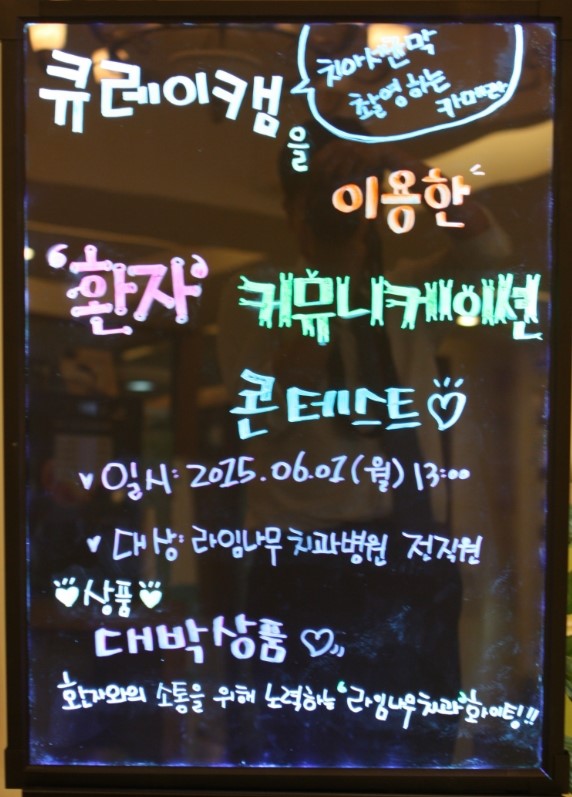 큐레이캠을
치아세균막
촬영하는
카메라
이용한
'환자' 커뮤니케이션
콘테스트
일시: 2015.06.01(월) 13:00
대상: 라임나무 치과병원 전직원
상품
대박상품
환자와의 소통을 위해 노력하는 '라임나무치과' 화이팅!!